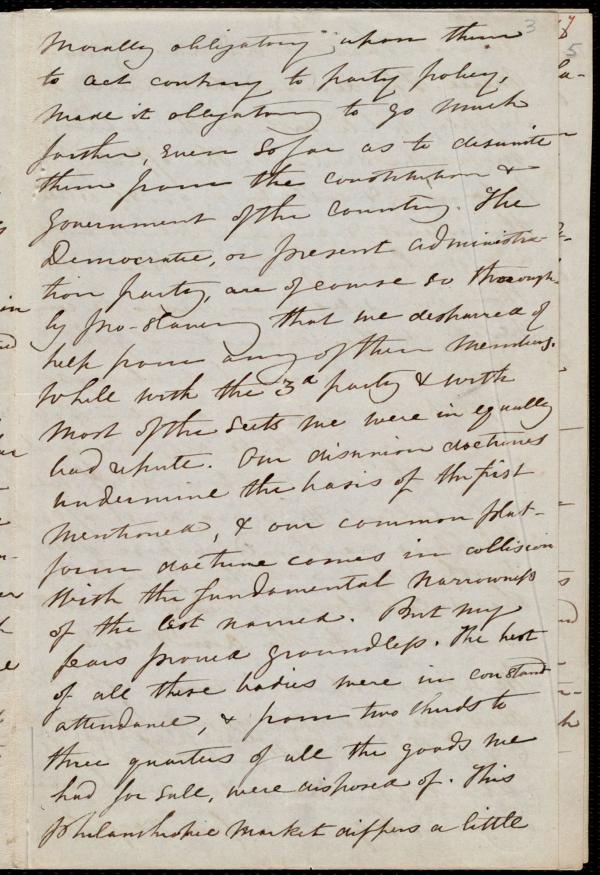 3
5
morally obligatory upon them
to act contrary to party policy,
made it obligatory to go much
farther, even so far as to disunite
them from the constitution &
government of the country. The
Democratic, or present administra-
tion party, are of course so thorough-
ly pro-slavery that we despaired of
help from any of their members.
While with the 3d party & with
most of the sects we were in equally
bad repute. Our disunion doctrines
undermine the basis of the first
mentioned, & our common plat-
form doctrine comes in collision
with the fundamental narrowness
of the last named. But my
fears proved groundless. The best
of all these bodies were in constant
attendance, & from two thirds to
three quarters of all the goods we
had for sale, were disposed of. This
philanthropic market differs a little